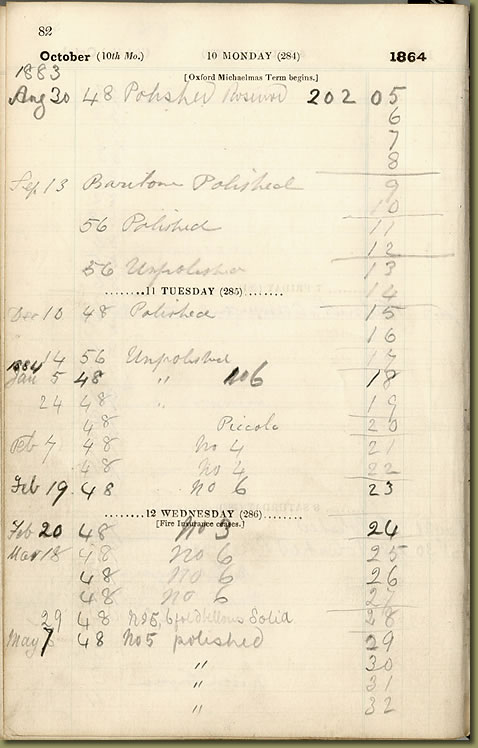 82
October (10th Mo.) 10 MONDAY (284) 1864
[Oxford Michaelmas Term begins.]
1883
Aug 30 48 Polished Rosewood 202 05
6
7
8
Sep 13 Baritone Polished 9
10
56 Polished 11
12
56 Unpolished 13
........11 TUESDAY (285)........ 14
Dec 10 48 Polished 15
16
14 56 Unpolished 17
1884
Jan 5 48 " No 6 18
24 48 " 19
48 Piccolo 20
Feb 7 48 No 4 21
48 No 4 22
Feb 19 48 No 6 23
........12 WEDNESDAY (286)........
[Fire Insurance ceases.]
Feb 20 48 No 3 24
Mar 18 48 No 6 25
48 No 6 26
48 No 6 27
29 48 No 5, 6 fold bellows Solid 28
May 7 48 No 5 polished 29
" 30
" 31
" 32